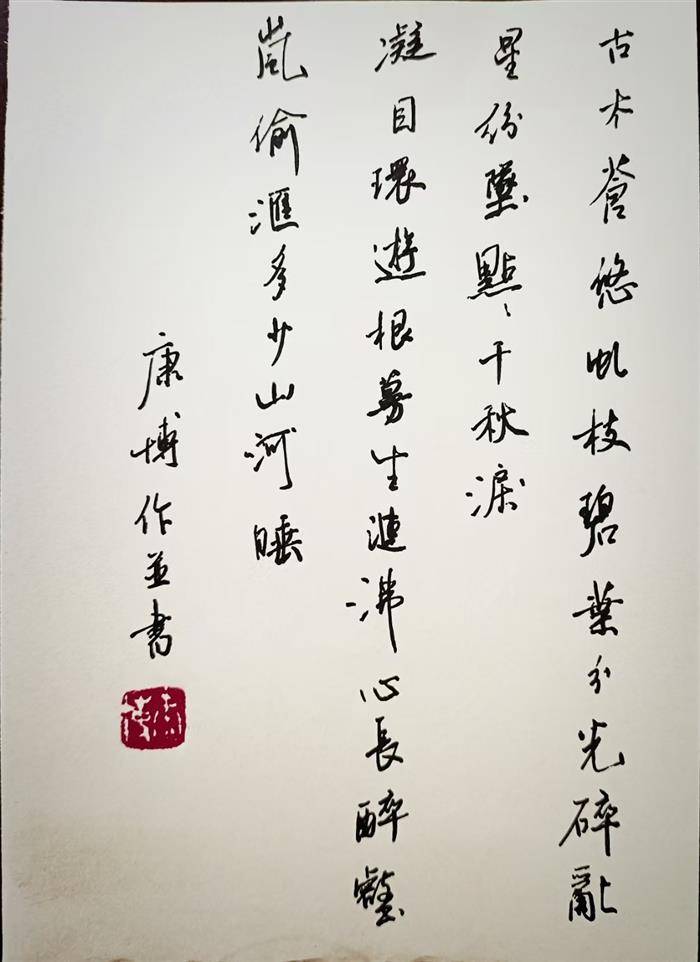 古木蒼悠虬枝碧葉分光碎亂
星紛墜點〻千秋淚
凝目環遊根蔓生漣沸心長醉壑
嵐偷滙多少山河睡
康博作並書